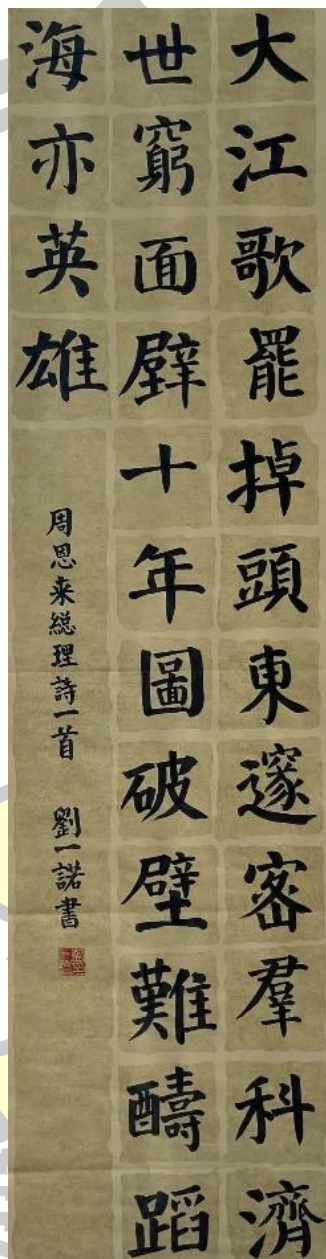 大江歌罷掉頭東邃密羣科濟
世窮面壁十年圖破壁難酬蹈
海亦英雄
周恩来總理詩一首 劉一諾書